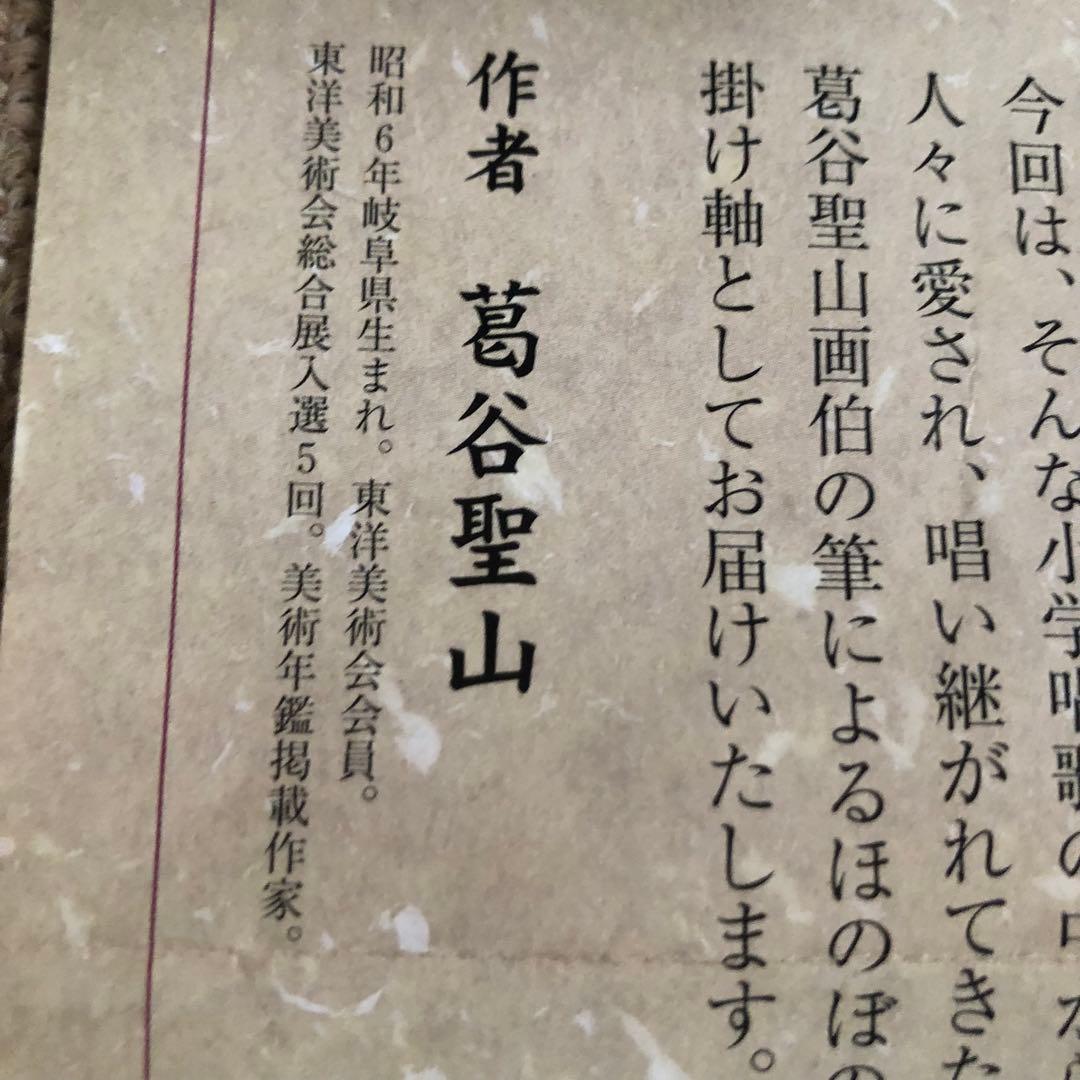 今回は、そんな小学唱歌の中から
人々に愛され、唱い継がれてきた
葛谷聖山画伯の筆によるほのぼの
掛け軸としてお届けいたします。
作者 葛谷聖山
昭和6年岐阜県生まれ。東洋美術会会員。
東洋美術会総合展入選5回。美術年鑑掲載作家。